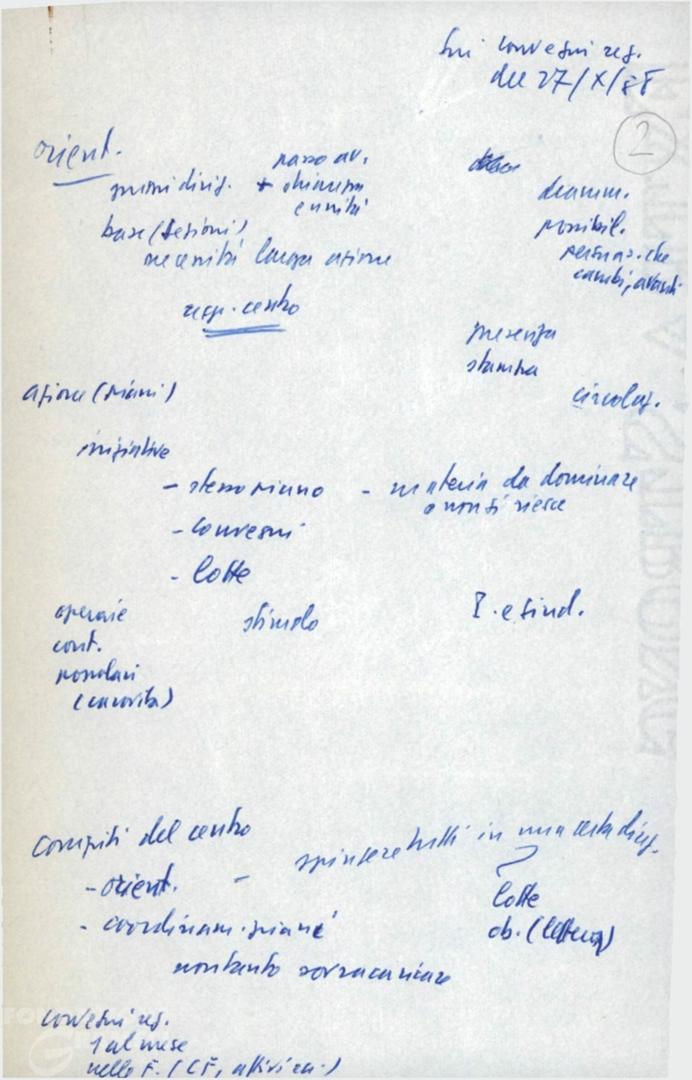 Sui convegni reg.
del 27/X/85
2
orient.
passo av.
gruppi dirig. + chiarezza
e unità
base (sezioni)
necessità lunga azione
resp. centro
dramm.
possibil.
persuas. che
cambi, avanti
presenza
stampa
circolaz.
azione (piani)
iniziative
- stesso piano - materia da dominare
o non si riesce
- convegni
- lotte
operaie stimolo I. e sind.
cont.
popolari
(carovita)
compiti del centro
spingere tutti in una certa direz.
- orient. -
lotte
- coordinam. piani
ob. (lettera)
non tanto sovraccaricare
convegni reg.
1 al mese
nelle F. (CF, attivi ecc.)